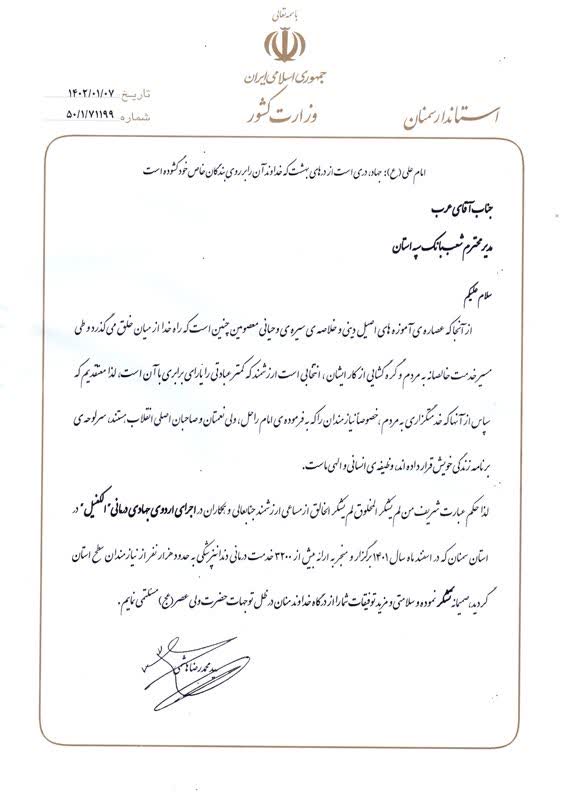 باسمه تعالی
جمهوری اسلامی ایران
وزارت کشور
استاندار سمنان
تاریخ ۱۴۰۲/۰۱/۰۷
شماره ۵۰/۱/۷۱۱۹۹
امام علی (ع): جهاد، دری است از درهای بهشت که خداوند آن را بر روی بندگان خاص خود گشوده است
جناب آقای عرب
مدیر محترم شعب بانک سپه استان
سلام علیکم
از آنجا که عصاره ی آموزه های اصیل دینی و خلاصه ی سیره ی وحیانی معصومین چنین است که راه خدا از میان خلق می گذرد و طی
مسیر خدمت خالصانه به مردم و گره گشایی از کار ایشان، انتخابی است ارزشمند که کمتر عبادتی را یارای برابری با آن است، لذا معتقدیم که
سپاس از آنها که خدمتگزاری به مردم، خصوصاً نیازمندان را که به فرموده ی امام راحل، ولی نعمتان و صاحبان اصلی انقلاب هستند، سرلوحه ی
برنامه زندگی خویش قرار داده اند، وظیفه ی انسانی و الهی ماست.
لذا حکم عبارت شریف من لم یشکر المخلوق لم یشکر الخالق از مساعی ارزشمند جنابعالی و همکاران در اجرای اردوی جهادی درمانی "الکفیل" در
استان سمنان که در اسفند ماه سال ۱۴۰۱ برگزار و منجر به ارائه بیش از ۳۲۰۰ خدمت درمانی دندانپزشکی به حدود هزار نفر از نیازمندان سطح استان
گردید، صمیمانه تشکر نموده و سلامتی و مزید توفیقات شما را از درگاه خداوند منان در ظل توجهات حضرت ولی عصر (عج) مسئلت می نمایم.
سید محمدرضا هاشمی